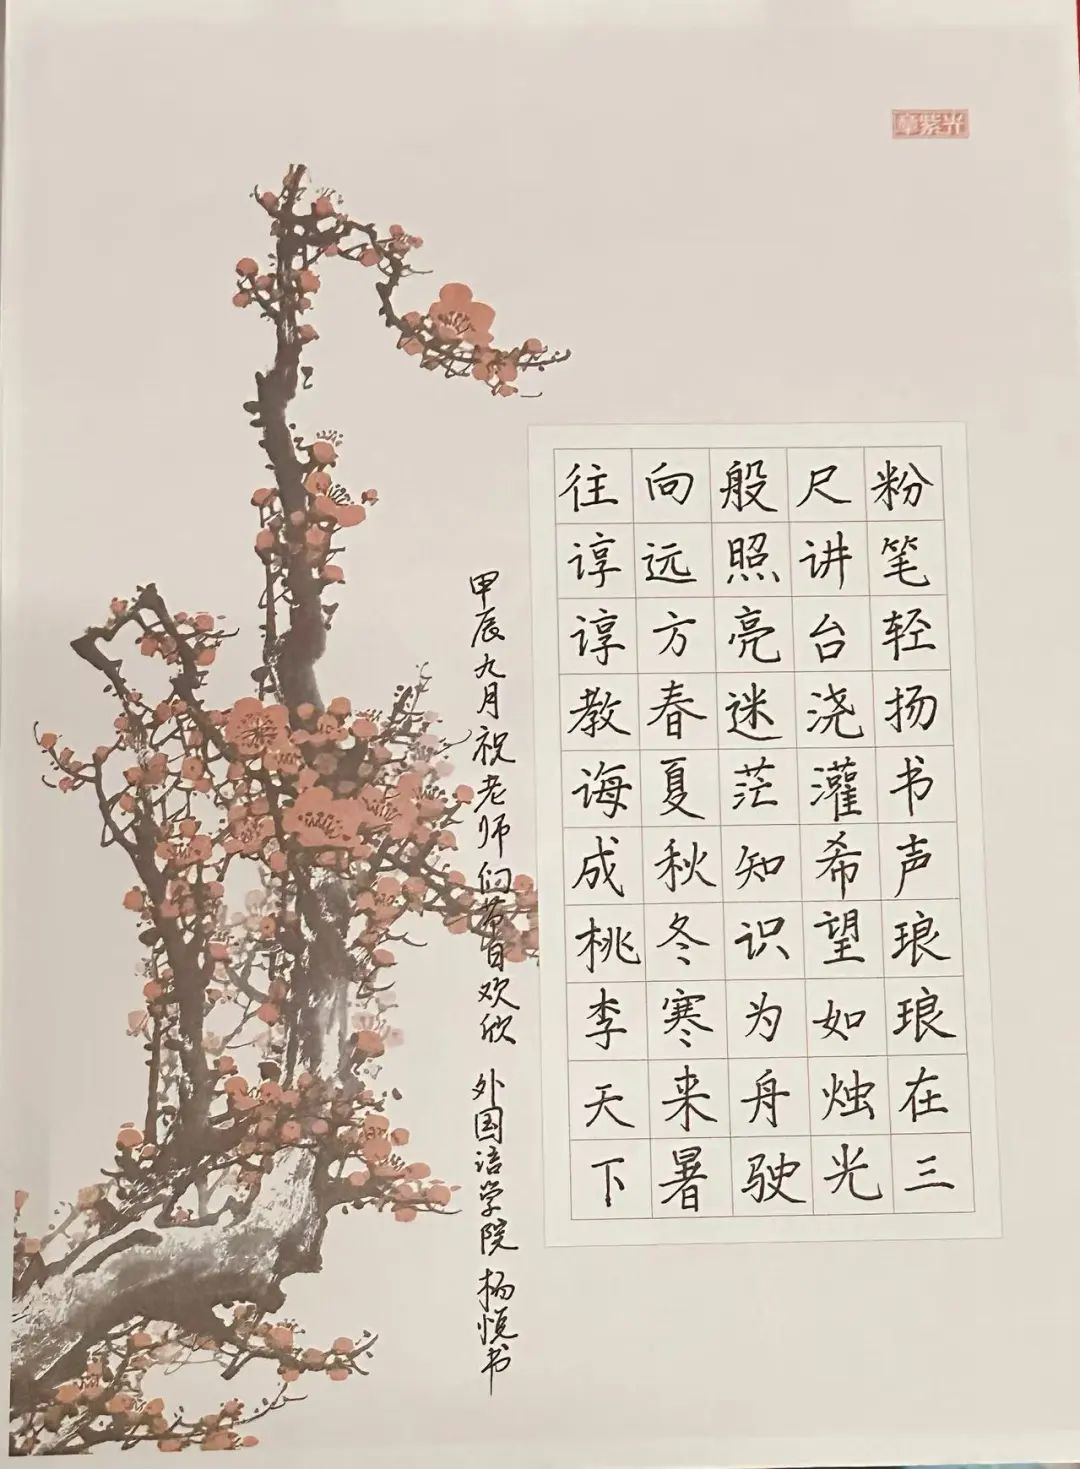 粉笔轻扬书声琅琅在三
尺讲台浇灌希望如烛光
般照亮迷茫知识为舟驶
向远方春夏秋冬寒来暑
往谆谆教诲成桃李天下
甲辰九月祝老师们节日欢欣 外国语学院 杨悦书